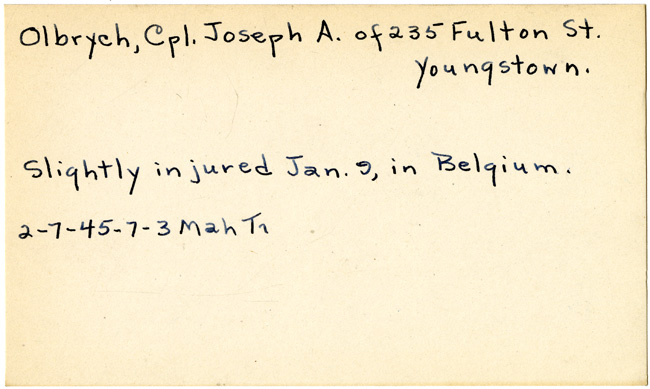 Olbrych, Cpl. Joseph A. of 235 Fulton St.
Youngstown.
Slightly injured Jan. 9, in Belgium.
2-7-45-7-3 Mah Tr